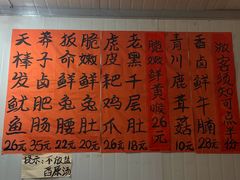 天棒发鱿鱼26元
莽子卤肥肠35元
扳命鲜兔腰22元
脆嫩鲜兔肚20元
虎皮耙鸡爪26元
老黑千层肚18元
脆嫩鲜黄喉26元
青川鹿茸菇10元
香卤鲜牛腩28元
客须知可点半份
提示:不放盐
原汤